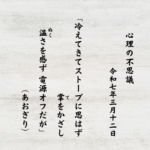 心理の不思議
令和七年三月十二日
「冷えてきてストーブに思はず
掌をかざし
て
温さを感ず 電源オフだが」
ぬく
（あおぎり）